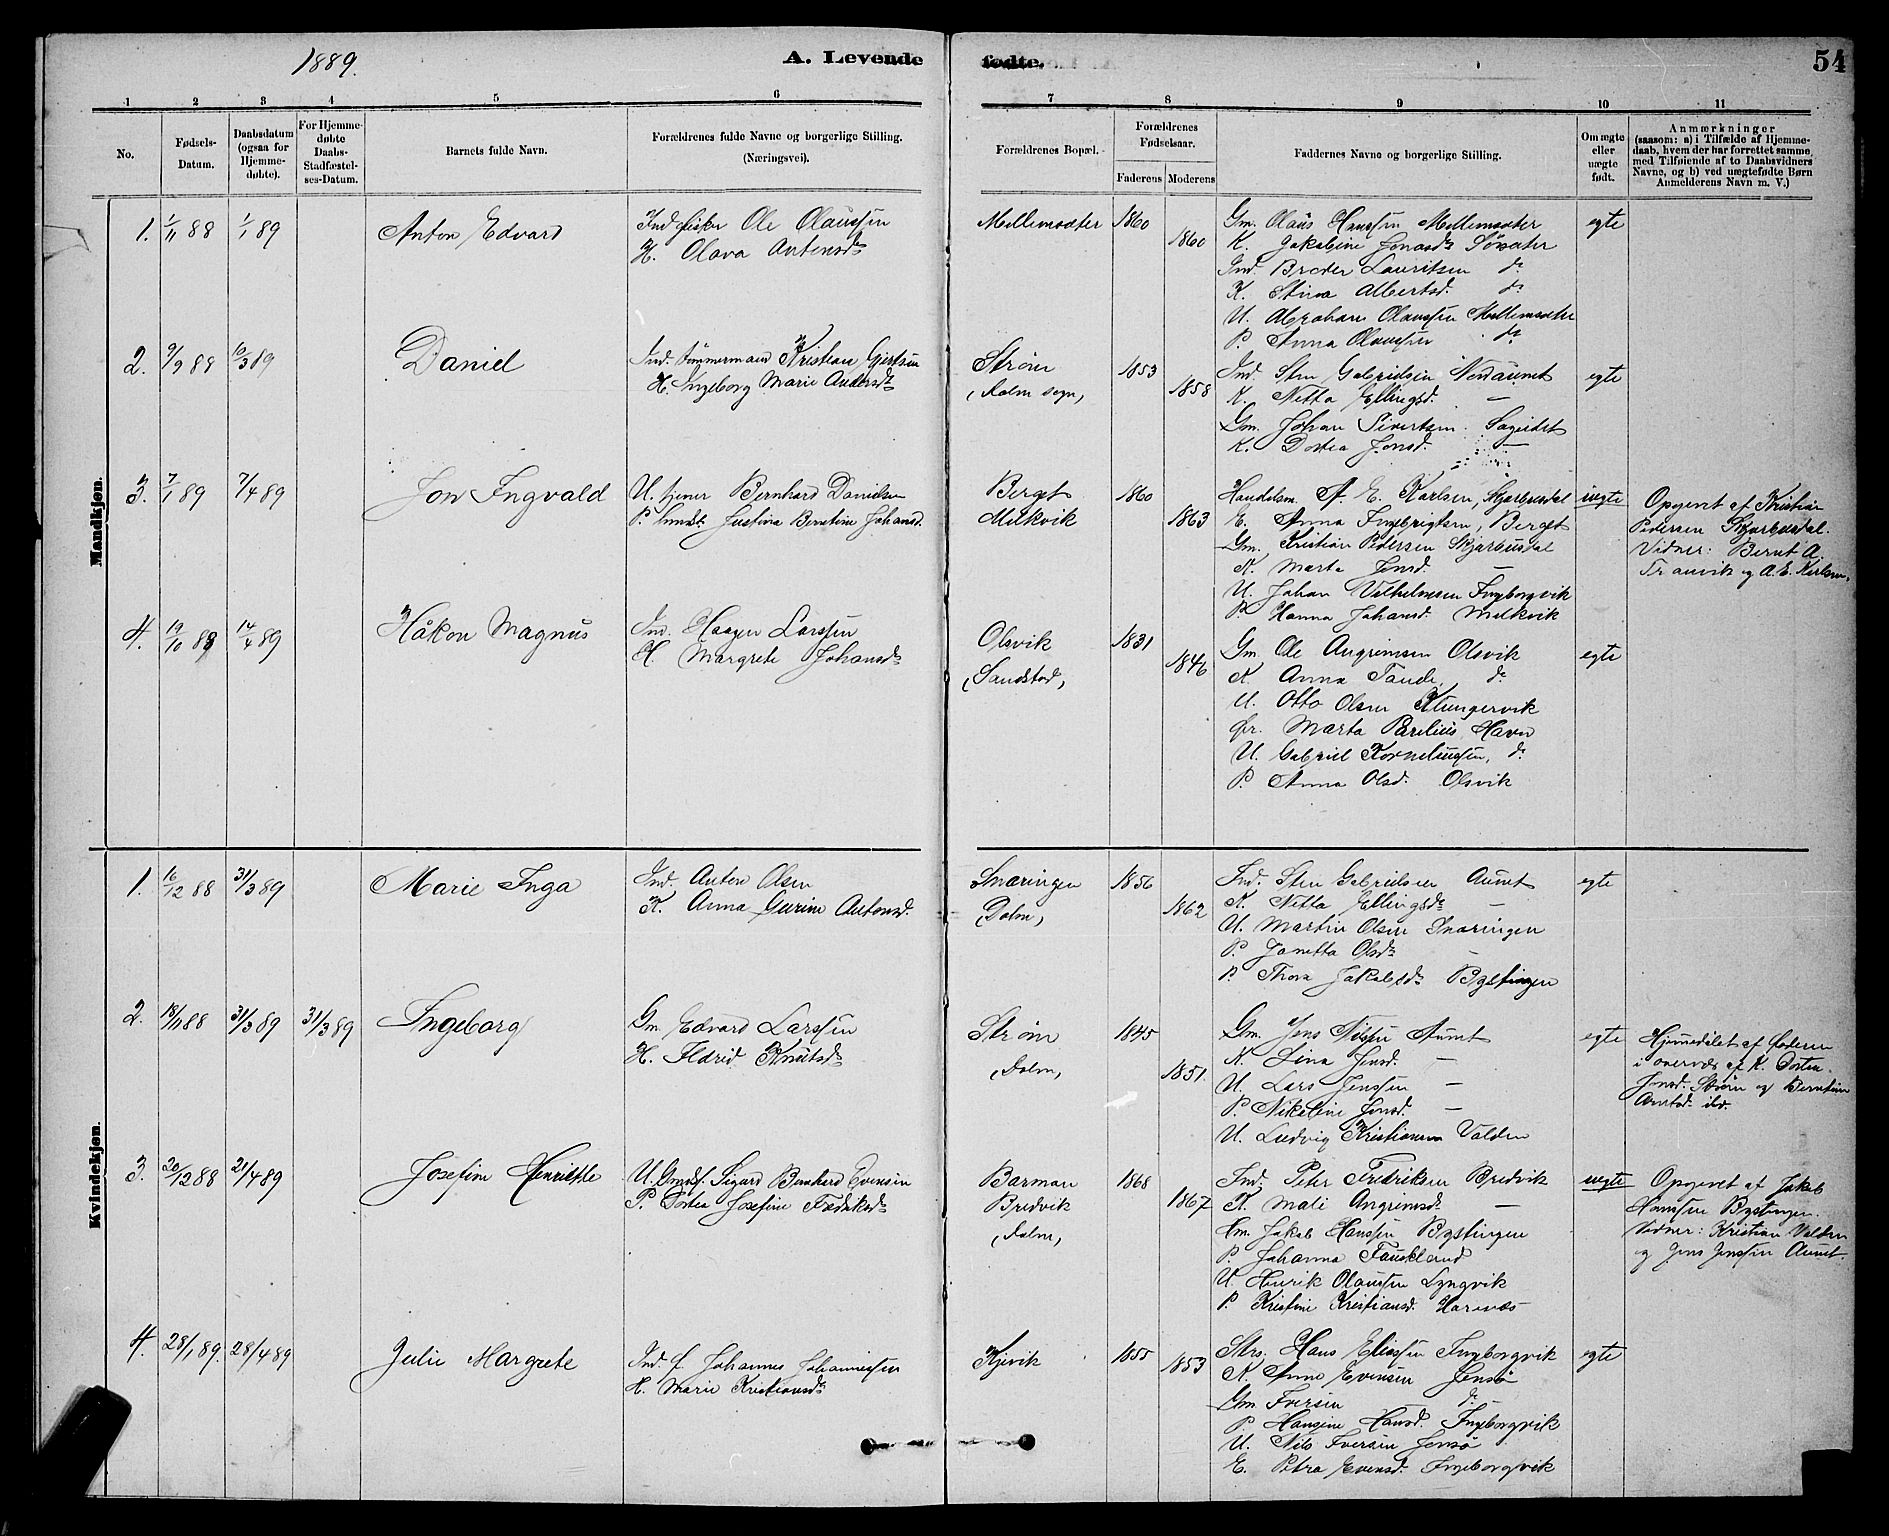 1889.
A. Levende
fødte.
54
1 2 3 4 5 6 7 8 9 10 11
No.
Fødsels-
Datum.
Daabsdatum
(ogsaa for
Hjemme-
døbte).
For Hjemme-
døbte
Daabs-
Stadfæstel-
ses-Datum.
Barnets fulde Navn.
Forældrenes fulde Navne og borgerlige Stilling.
(Næringsvei).
Forældrenes Bopæl.
Forældrenes
Fødselsaar.
Faderens Moderens
Faddernes Navne og borgerlige Stilling.
Om ægte
eller
uægte
født.
Anmærkninger
(saasom: a) i Tilfælde af Hjemme-
daab, hvem der har forrettet samme,
med Tilføiende af to Daabsvidners
Navne, og b) ved uægtefødte Børn
Anmelderens Navn m. V.)
Mandkjøn.
1. 1/11 88 1/1 89 Anton Edvard
Ind fisker Ole Olaussen
H. Olava Antonsd.
Mellemsæter 1860
1860
Gm. Olaus Hanssen Mellemsæter
K. Jakobine Jonasd. Søsæter
Ind. Broder Lauritsen do
K. Stina Albertsd. do
U. Abraham Olaussen Mellemsæter
P. Anna Olaussen do
egte
2. 9/9 88 10/3 89 Daniel
Ind. tømmermand Kristian Gjertsen
H. Ingeborg Marie Andersd.
Strøm
(Dolm sogn)
1853
1858
Ind. Sten Gabrielsen Nordaunet
K. Netta Ellingsd. —
Gm. Johan Sivertsen Sageidet
K. Dortea Jonsd. —
egte
3. 7/1 89 7/4 89 Jon Ingvald
U. tjener Bernhard Danielsen
P. Justina Berntine Johansd.
Berget
Melkvik
1860
1863
Handelsm. A. E. Karlsen, Skjærbusdal
E. Anna Ingebrigtsen, Berget
Gm. Kristian Pedersen Skjærbusdal
K. Marta Jensd.
U. Johan Vilhelmsen Ingborgvik
P. Hanna Johansd. Melkvik
uegte
Opgivet af Kristian
Pedersen Skjærbusdal.
Vidner: Bernt A.
Tranvik og A. E. Karlsen.
4. 19/10 88 14/4 89 Håkon Magnus
Ind. Haagen Larssen
H. Margrete Johansd.
Olsvik
(Sandstad)
1831
1846
Gm. Ole Angrimsen Olsvik
K. Anna Tande, do
U. Otto Olsen Klungervik
Fr. Marta Parelius Havn
U. Gabriel Korneliussen, do
P. Anna Olsd. Olsvik
egte
Kvindekjøn.
1. 16/12 88 31/3 89 Marie Inga
Ind. Anton Olsen
K. Anna Gurine Antonsd.
Snaringen
(Dolm)
1856
1862
Ind. Sten Gabrielsen Aunet
K. Netta Ellingsd. —
U. Martin Olsen Snaringen
P. Janetta Olsd.
P. Thora Jakobsd. Bystingen
egte
2. 18/11 88 31/3 89 31/3 89 Ingeborg
Gm. Edvard Larssen
H. Ildrid Knutsd.
Strøm
(Dolm)
1845
1851.
Gm. Jens Nilssen Aunet
K. Lina Jensd. —
U. Lars Jenssen —
P. Nikoline Jensd. —
U. Ludvig Kristiansen Valden
egte
Hjemmedøbt af faderen
i overvær af K. Dortea
Jonsd. Strøm og Berntine
Arntsd. ibd.
3. 20/12 88 21/4 89 Josefine Henrikke
U. Gmdsf. Sigurd Bernhard Evensen
P. Dortea Josefine Fredriksd.
Barman
Bredvik
(Dolm)
1868
1867
Ind. Peter Fredriksen Bredvik
K. Mali Angrimsd. —
Gm. Jakob Hanssen Bystingen
P. Johanna Fauskland
U. Henrik Olaussen Lyngvik
P. Kristine Kristiansd. Havnæs
uegte
Opgivet af Jakob
Hanssen Bystingen.
Vidner: Kristian Valden
og Jens Jenssen Aunet.
4. 28/1 89. 28/4 89 Julie Margrete
Ind. f. Johannes Johannessen
H. Marie Kristiansd.
Kjervik
1855
1853
Strs. Hans Eliassen Ingborgvik
K. Anne Evensen Jensø
Gm. Iversen do
P. Hansine Hansd. Ingeborgvik
U. Nils Iversen Jensø
E. Petra Evensd. Ingeborgvik
egte